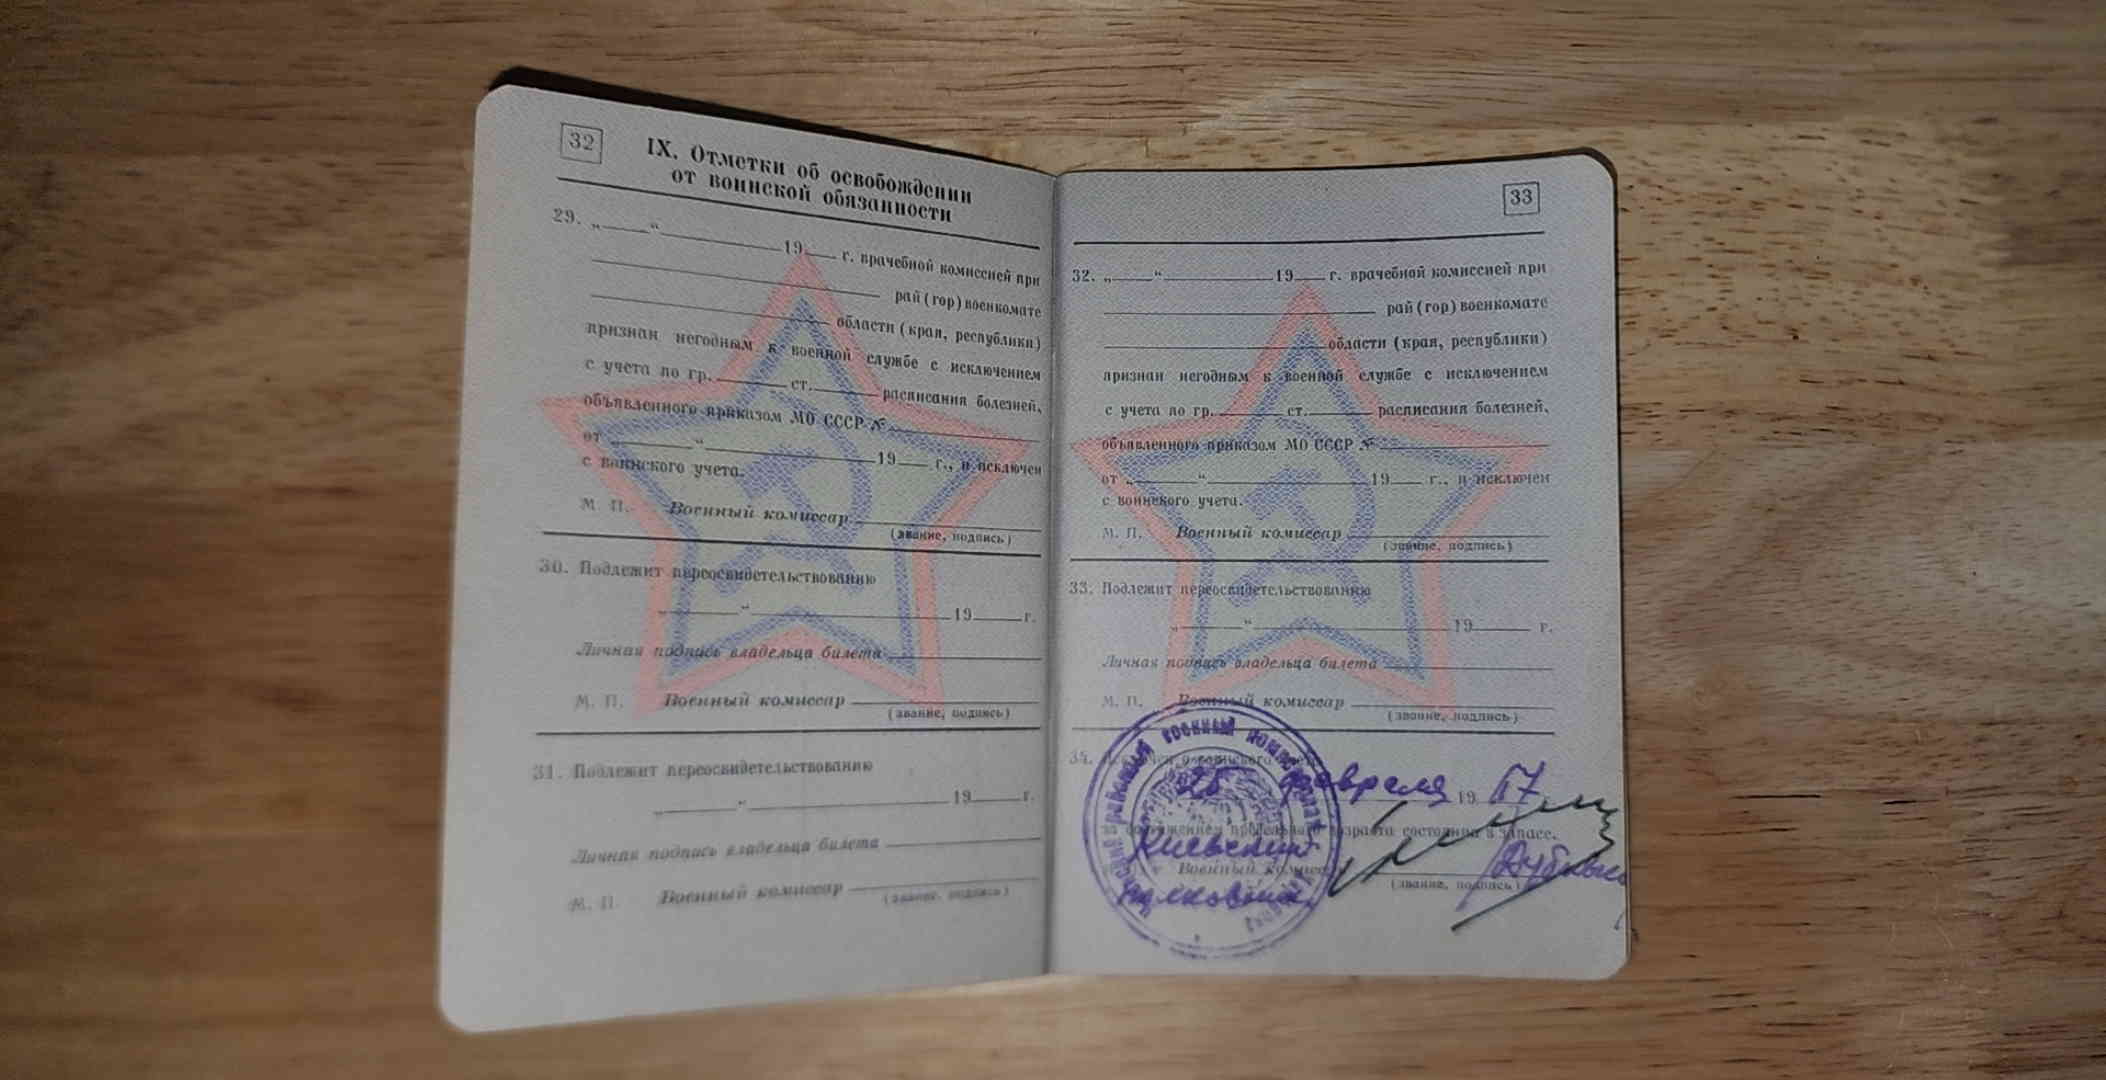 32
IX. Отметки об освобождении
от воинской обязанности
29. „ “ 19 г. врачебной комиссией при
рай (гор) военкомате
области (края, республики)
признан негодным к военной службе с исключением
с учета по гр. ст. расписания болезней,
объявленного приказом МО СССР №
от “ 19 г., и исключен
с воинского учета.
М. П. Военный комиссар
(звание, подпись)
30. Подлежит переосвидетельствованию
„ “ 19 г.
Личная подпись владельца билета
М. П. Военный комиссар
(звание, подпись)
31. Подлежит переосвидетельствованию
“ 19 г.
Личная подпись владельца билета
М. П. Военный комиссар
(звание, подпись)
33
32. „ “ 19 г. врачебной комиссией при
рай (гор) военкомате
области (края, республики)
признан негодным к военной службе с исключением
с учета по гр. ст. расписания болезней,
объявленного приказом МО СССР №
от „ “ 19 г., и исключен
с воинского учета.
М. П. Военный комиссар
(звание, подпись)
33. Подлежит переосвидетельствованию
„ “ 19 г.
Личная подпись владельца билета
М. П. Военный комиссар
(звание, подпись)
34.
февраля 19
возраста состояния в запасе.
Военный комиссар
(звание, подпись)
районный военный